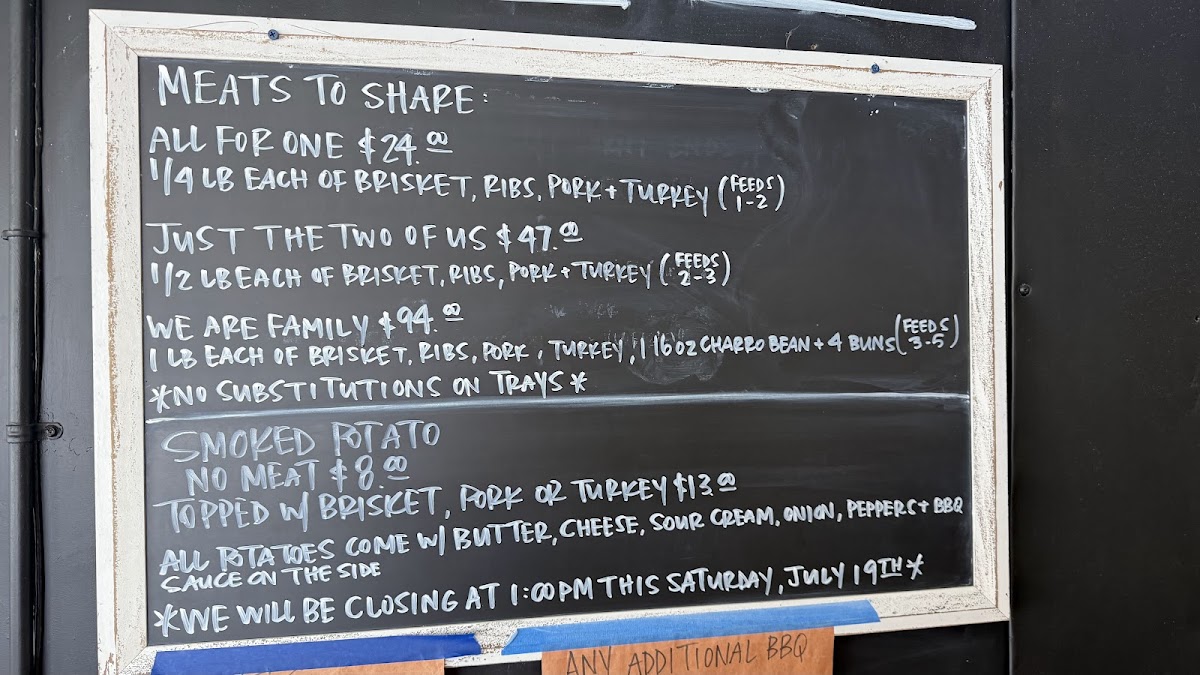 MEATS TO SHARE:
ALL FOR ONE $24.00
1/4 LB EACH OF BRISKET, RIBS, PORK + TURKEY (FEEDS 1-2)
JUST THE TWO OF US $47.00
1/2 LB EACH OF BRISKET, RIBS, PORK + TURKEY (FEEDS 2-3)
WE ARE FAMILY $94.00
1 LB EACH OF BRISKET, RIBS, PORK, TURKEY, 1 16oz CHARRO BEAN + 4 BUNS (FEEDS 3-5)
*NO SUBSTITUTIONS ON TRAYS*
SMOKED POTATO
NO MEAT $8.00
TOPPED W/ BRISKET, PORK OR TURKEY $13.00
ALL POTATOES COME W/ BUTTER, CHEESE, SOUR CREAM, ONION, PEPPERS + BBQ
SAUCE ON THE SIDE
*WE WILL BE CLOSING AT 1:00PM THIS SATURDAY, JULY 19TH*
ANY ADDITIONAL BBQ